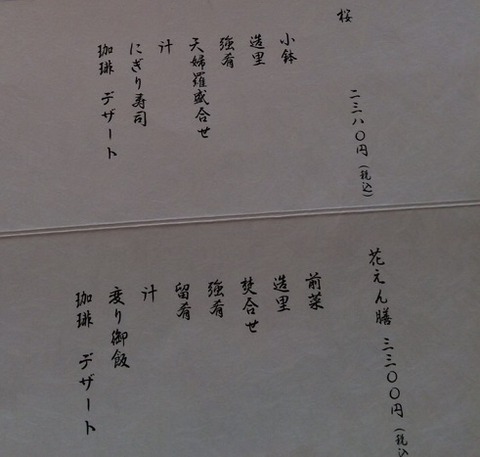 桜
二三八〇円（税込）
小鉢
造里
強肴
天婦羅盛合せ
汁
にぎり寿司
珈琲 デザート
花えん膳 三三〇〇円（税込
前菜
造里
焚合せ
強肴
留肴
汁
変り御飯
珈琲 デザート